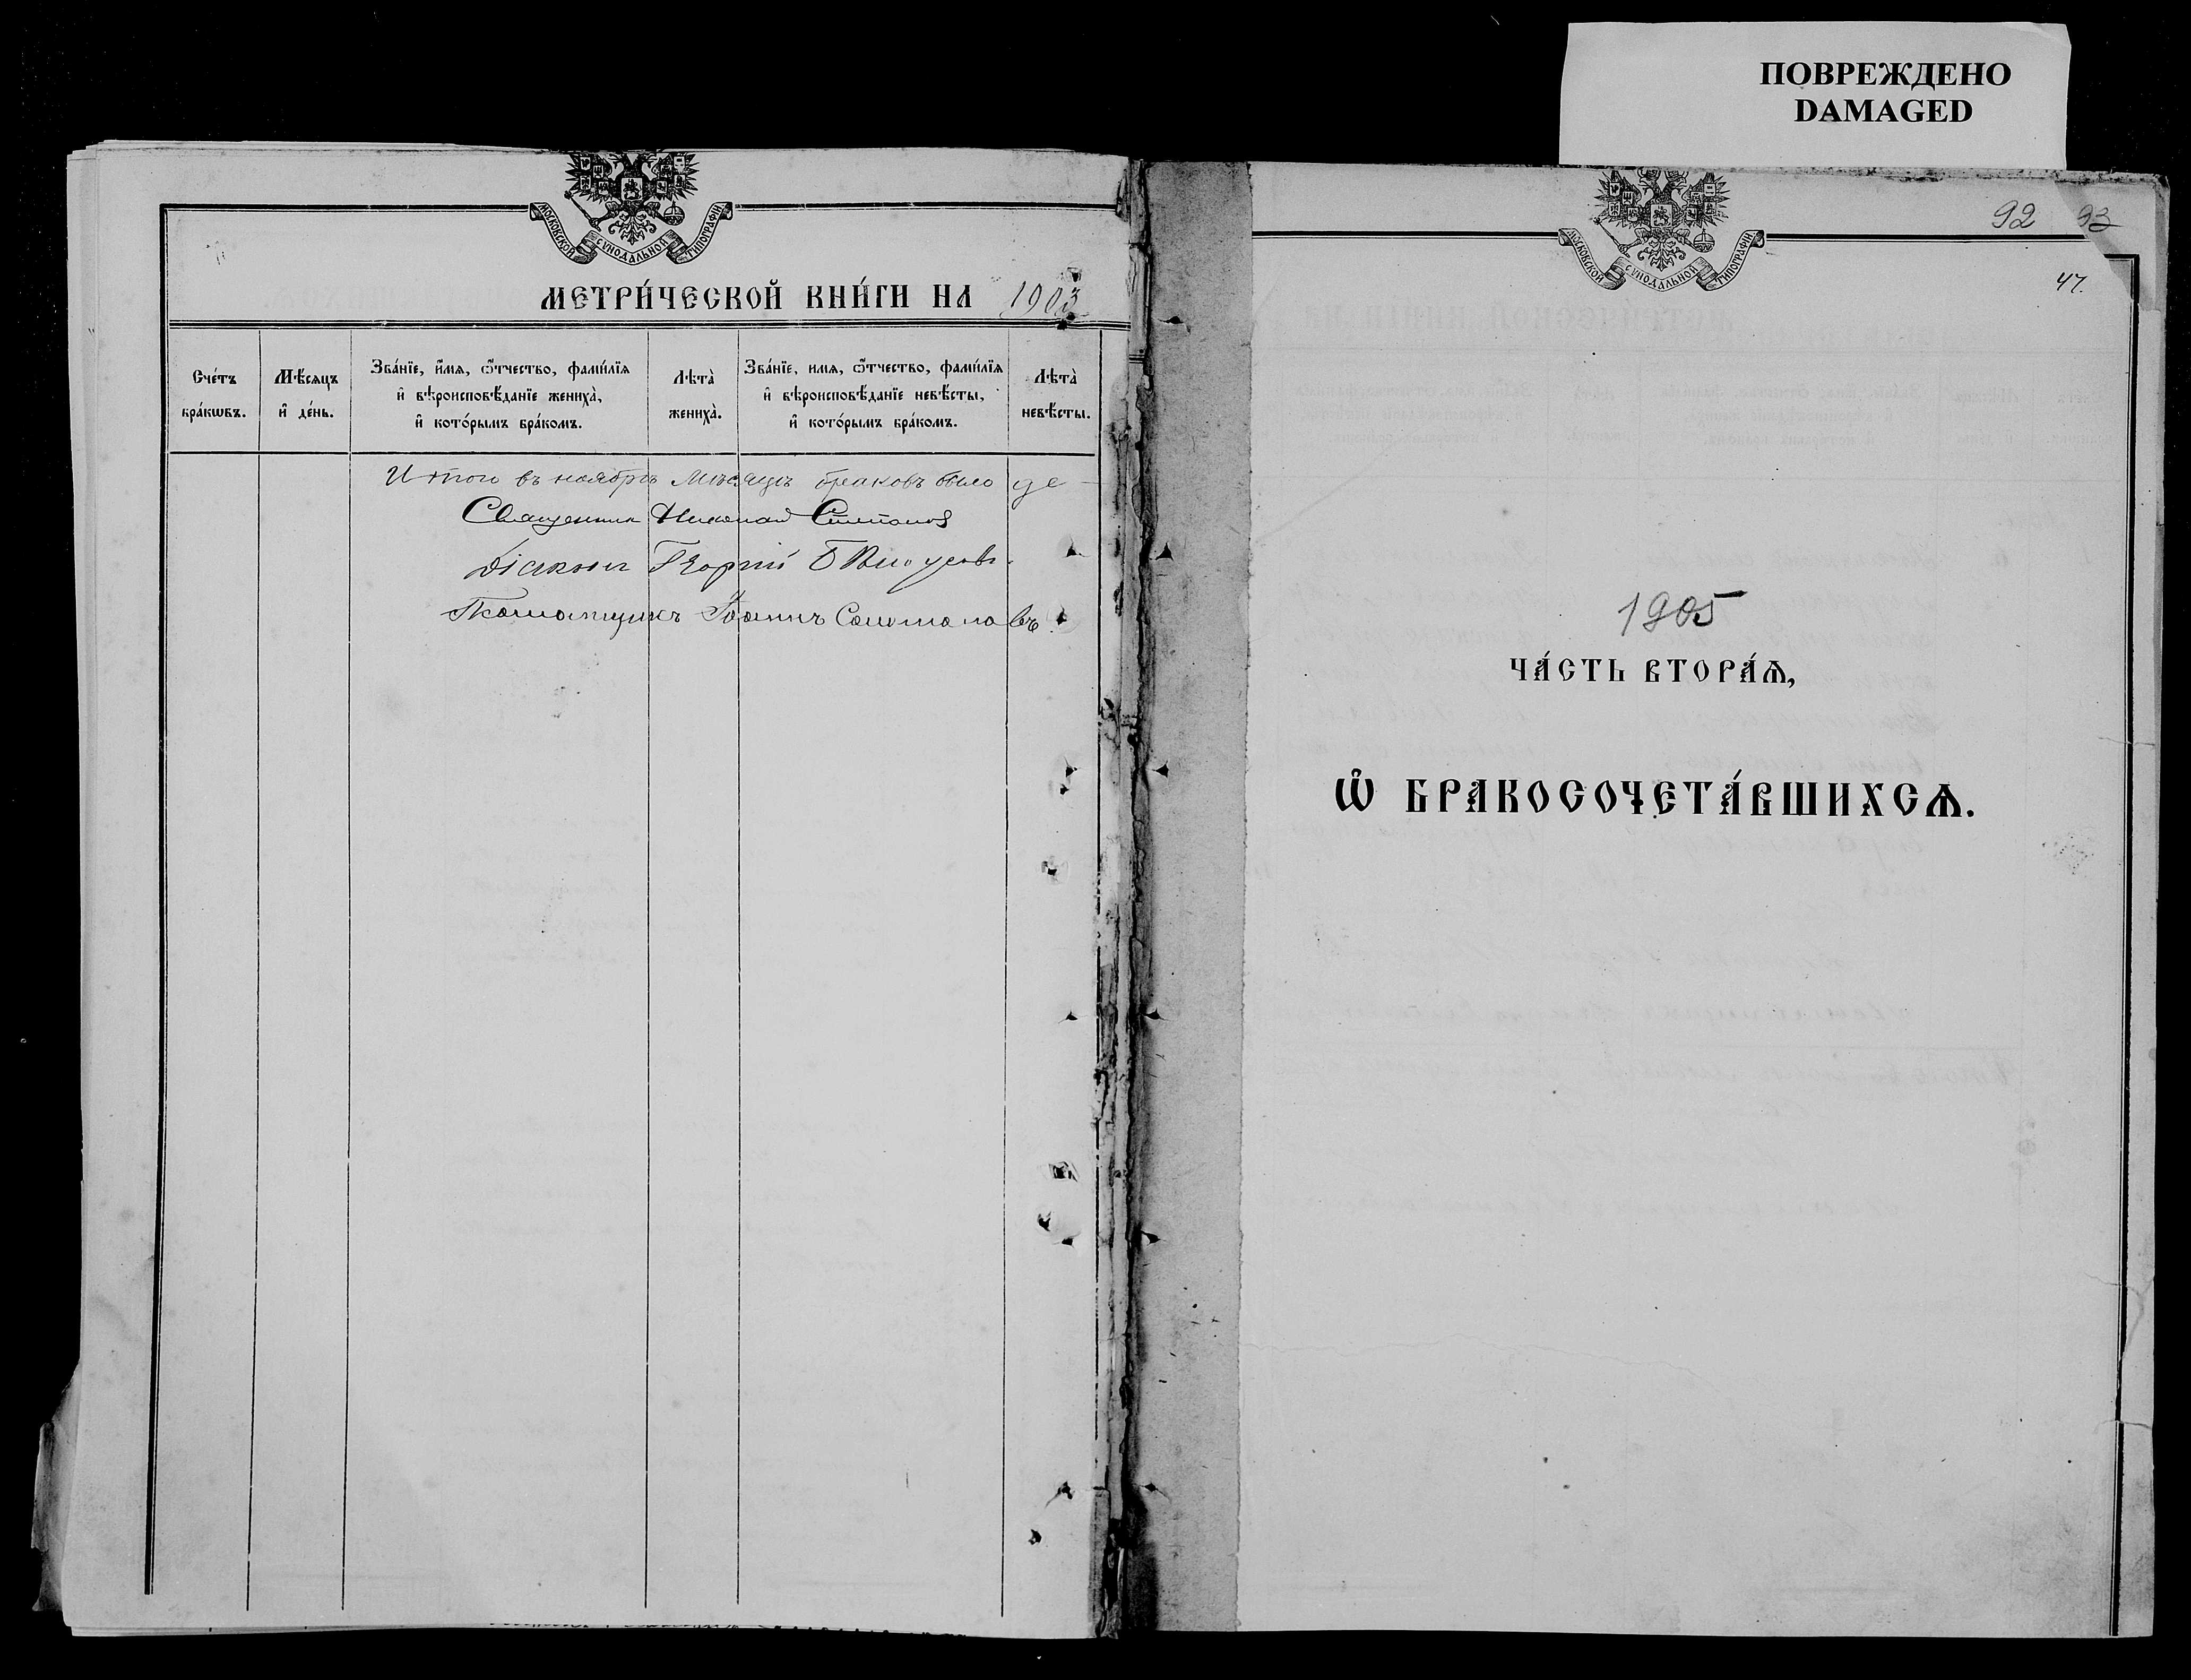 ПОВРЕЖДЕНО
DAMAGED
МОСКОВСКОЙ СѴНОДАЛЬНОЙ ТИПОГРАФІИ
МЕТРИ́ЧЕСКОЙ КНИ́ГИ НА 1903
Сче́тъ бра́кѡвъ.
Мѣ́сяцъ и҆ де́нь.
Зва́нїе, и҆́мѧ, ѻ҆́тчество, фами́лїѧ
и҆ вѣроисповѣ́данїе жениха̀,
и҆ кото́рымъ бра́комъ.
Лѣта̀ жениха̀.
Зва́нїе, имѧ, ѻ҆́тчество, фами́лїѧ
и҆ вѣроисповѣ́данїе невѣ́сты,
и҆ кото́рымъ бра́комъ.
Лѣта̀ невѣ́сты.
Итого въ ноябрѣ Мѣсяцѣ браковъ было
Священник Николай
Діаконъ Георгій
Псаломщикъ Іоаннъ
МОСКОВСКОЙ СѴНОДАЛЬНОЙ ТИПОГРАФІИ
92 93
47.
1905
ЧА́СТЬ ВТОРА́Ѧ,
Ѽ БРАКОСОЧЕТА́ВШИХСѦ.